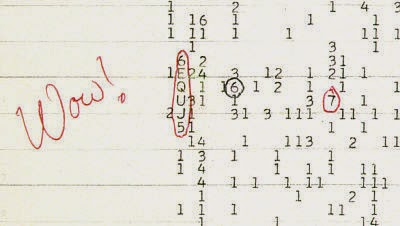 1 2 1 4 3
1 16 1 1 1
1 11 1 1 3 11
1 3 1
6 2 31
1 E 24 3 12 1 21 1
Wow!
Q 1 16 1 2 1 1 1
U 31 1 3 7 1
2 J 1 31 3 111 11 1 1
5 1 1 1
14 1 113 2 11
1 3 1 1 1
1 1 1 1 11
1 4 1 1 11 1 1 111
1 1 2 1
1 1 1 11 1
1 14